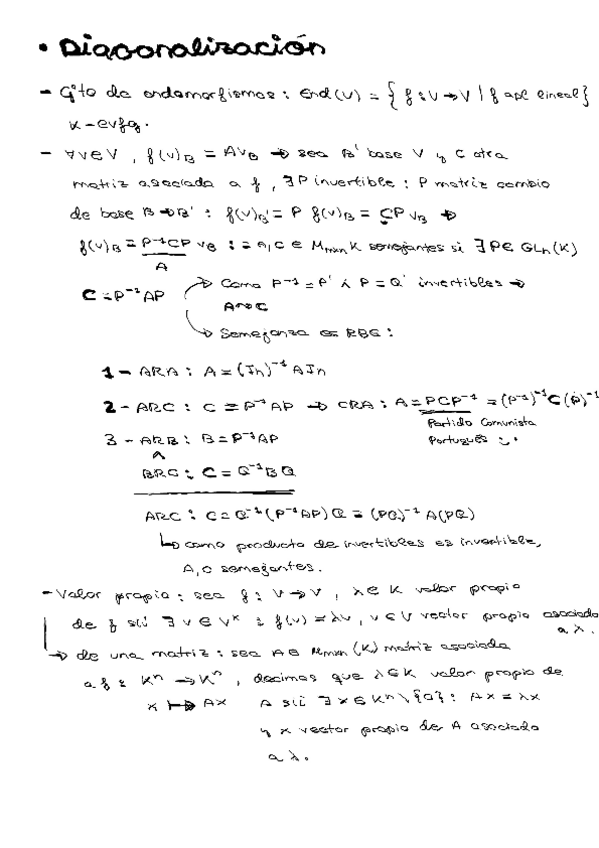 • Diagonalización
- Cjto de endomorfismos : End(V) = { f : V → V | f apl lineal }
K-evfg.
- ∀v∈V , f(v)_B = A v_B → sea B' base V y C otra
matriz asociada a f, ∃P invertible : P matriz cambio
de base B→B' : f(v)_B' = P f(v)_B = C P v_B →
f(v)_B = P⁻¹CP v_B := A,C ∈ M_mxn K semejantes si ∃ P ∈ GL_n(K)
A
C = P⁻¹AP
→ Como P⁻¹ = P' ∧ P = Q' invertibles →
A ~ C
→ Semejanza es RBE :
1 - ARA : A = (In)⁻¹ A In
2 - ARC : C = P⁻¹AP → CRA : A = PCP⁻¹ = (P⁻¹)⁻¹ C (P)⁻¹
Partido Comunista
Portugués
3 - ARB : B = P⁻¹AP
∧
BRC : C = Q⁻¹BQ
ARC : C = Q⁻¹(P⁻¹AP)Q = (PQ)⁻¹ A(PQ)
↳ como producto de invertibles es invertible,
A, C semejantes.
- Valor propio : sea f : V → V , λ ∈ K valor propio
de f sii ∃ v ∈ V* : f(v) = λv , v ∈ V vector propio asociado
a λ.
→ de una matriz : sea A ∈ M_mxn (K) matriz asociada
a f : Kⁿ → Kⁿ , decimos que λ∈K valor propio de
x ↦ Ax A sii ∃ x ∈ Kⁿ\{0} : Ax = λx
y x vector propio de A asociado
a λ.